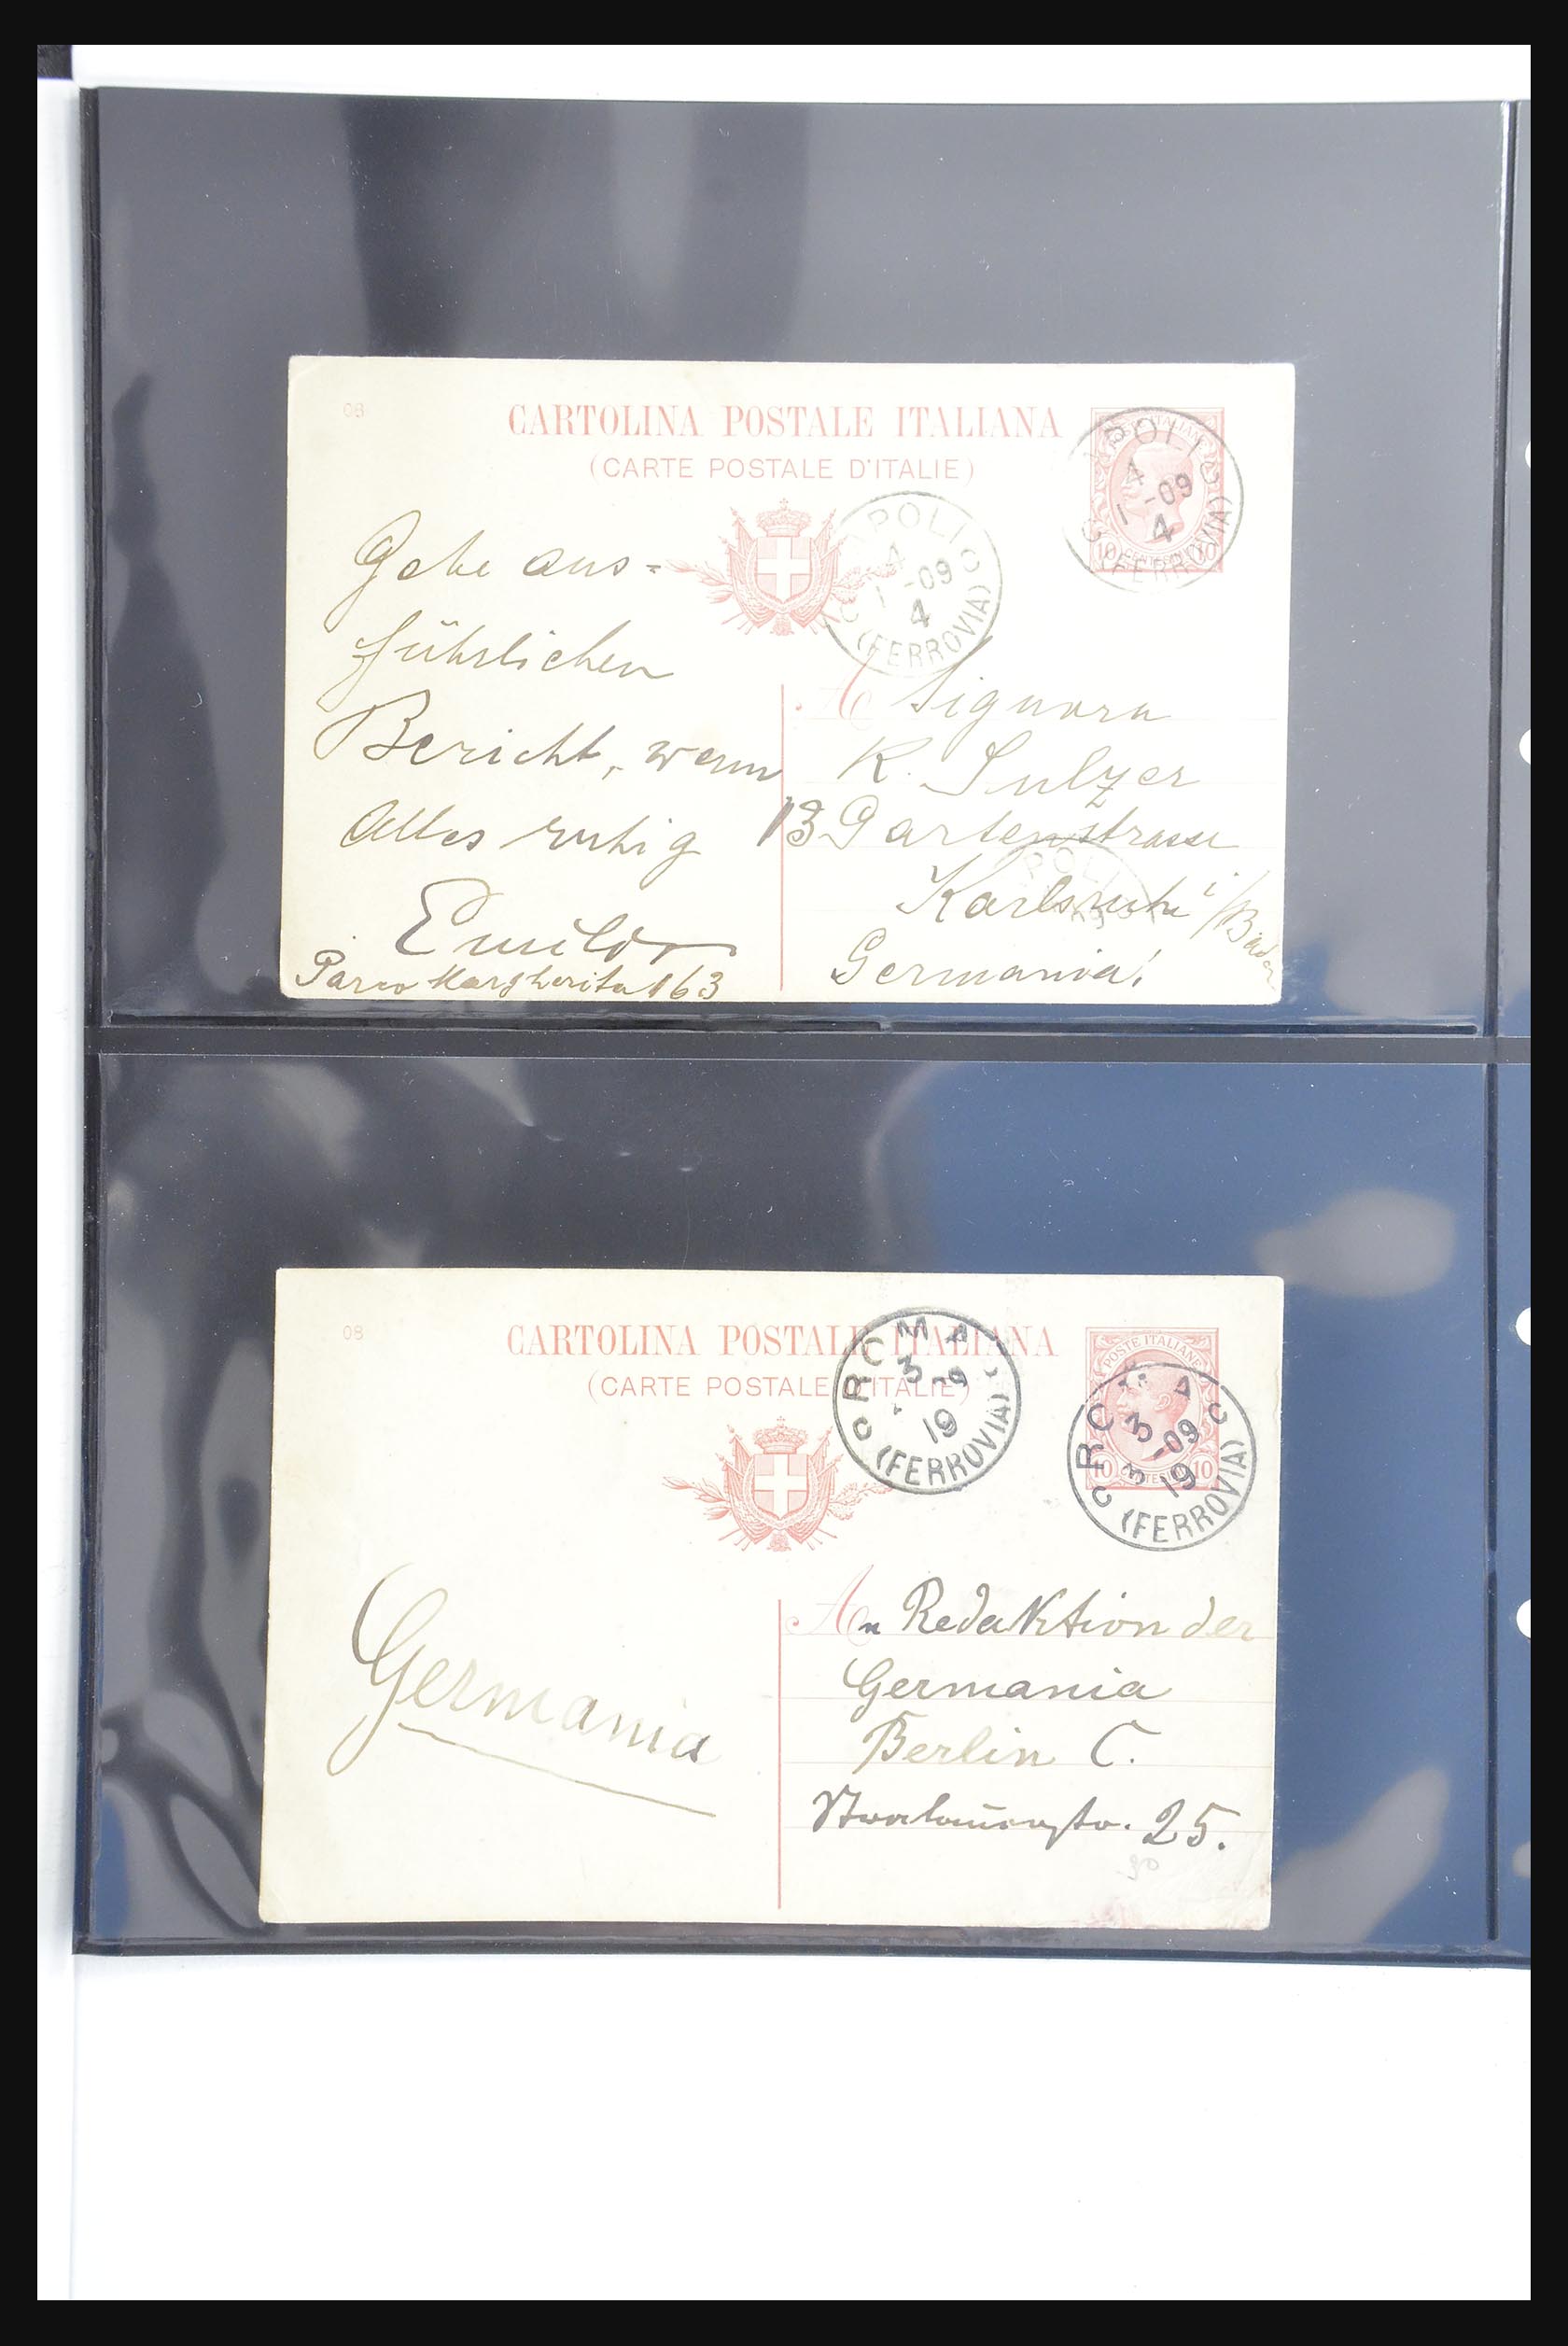 08
CARTOLINA POSTALE ITALIANA
(CARTE POSTALE D'ITALIE)
POLI C
4
1 -09
4
C (FERROVIA)
POLI C
4
1 -09
4
C (FERROVIA)
Gebe aus=
führlichen
Bericht, wenn
Alles ruhig
Emil
Parco Margherita 163
A Signora
K. Sulzer
13 Gartenstrasse
Karlsruhe i/Baden
Germania!
POLI
08
CARTOLINA POSTALE ITALIANA
(CARTE POSTALE D'ITALIE)
ROMA
3
-09
19
C (FERROVIA)
POSTE ITALIANE
10 10
ROMA C
3
3 -09
19
C (FERROVIA)
Germania
An Redaktion der
Germania
Berlin C.
Stralauerstr. 25.